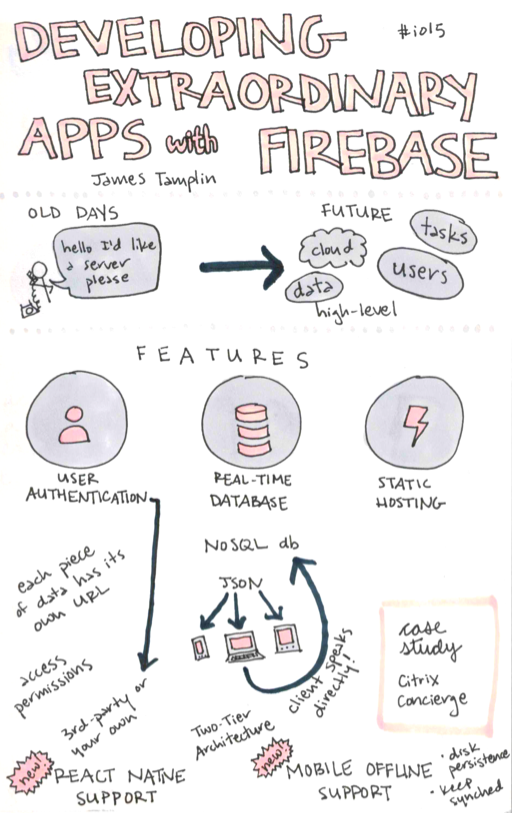 DEVELOPING
#io15
EXTRAORDINARY
APPS with FIREBASE
James Tamplin
OLD DAYS
hello I'd like
a server
please
FUTURE
cloud
tasks
users
data
high-level
FEATURES
USER
AUTHENTICATION
REAL-TIME
DATABASE
STATIC
HOSTING
each piece
of data has its
own URL
access
permissions
3rd-party or
your own
NoSQL db
JSON
client speaks
directly!
Two-Tier
Architecture
case
study
Citrix
Concierge
new!
REACT NATIVE
SUPPORT
new!
MOBILE OFFLINE
SUPPORT
• disk
persistence
• keep
synched